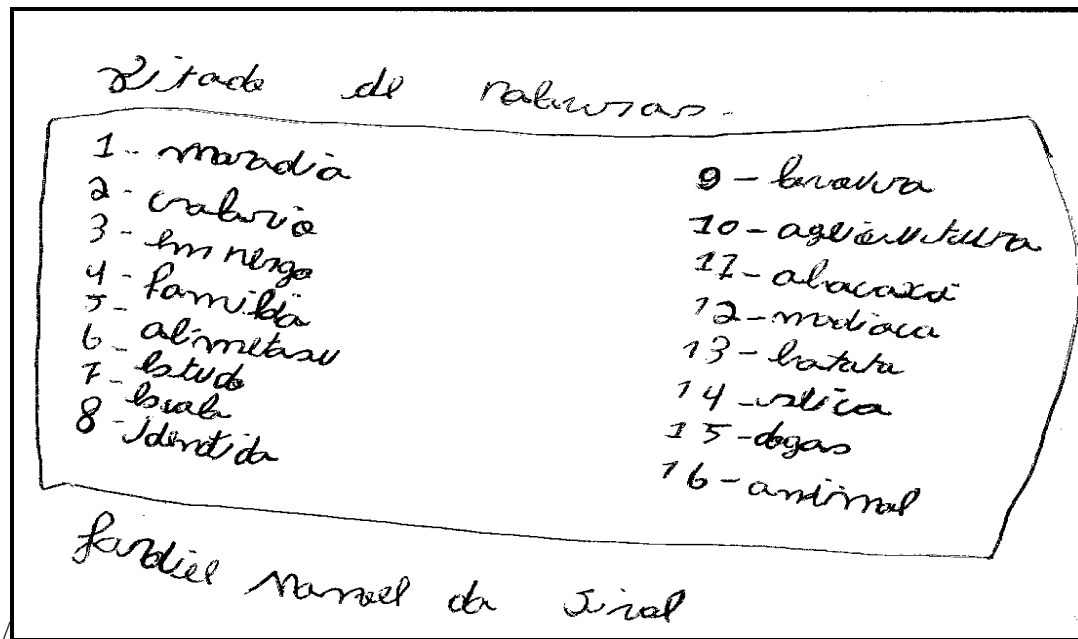 Litado de palavras.
1 - moradia
2 - calario
3 - em nergo
4 - familia
5 - alimetasu
6 - Estudo
7 - Escola
8 - identida
9 - lavoura
10 - agricultura
11 - abacaxi
12 - madioca
13 - batata
14 -
15 - dogas
16 - animal
Manoel da Sival